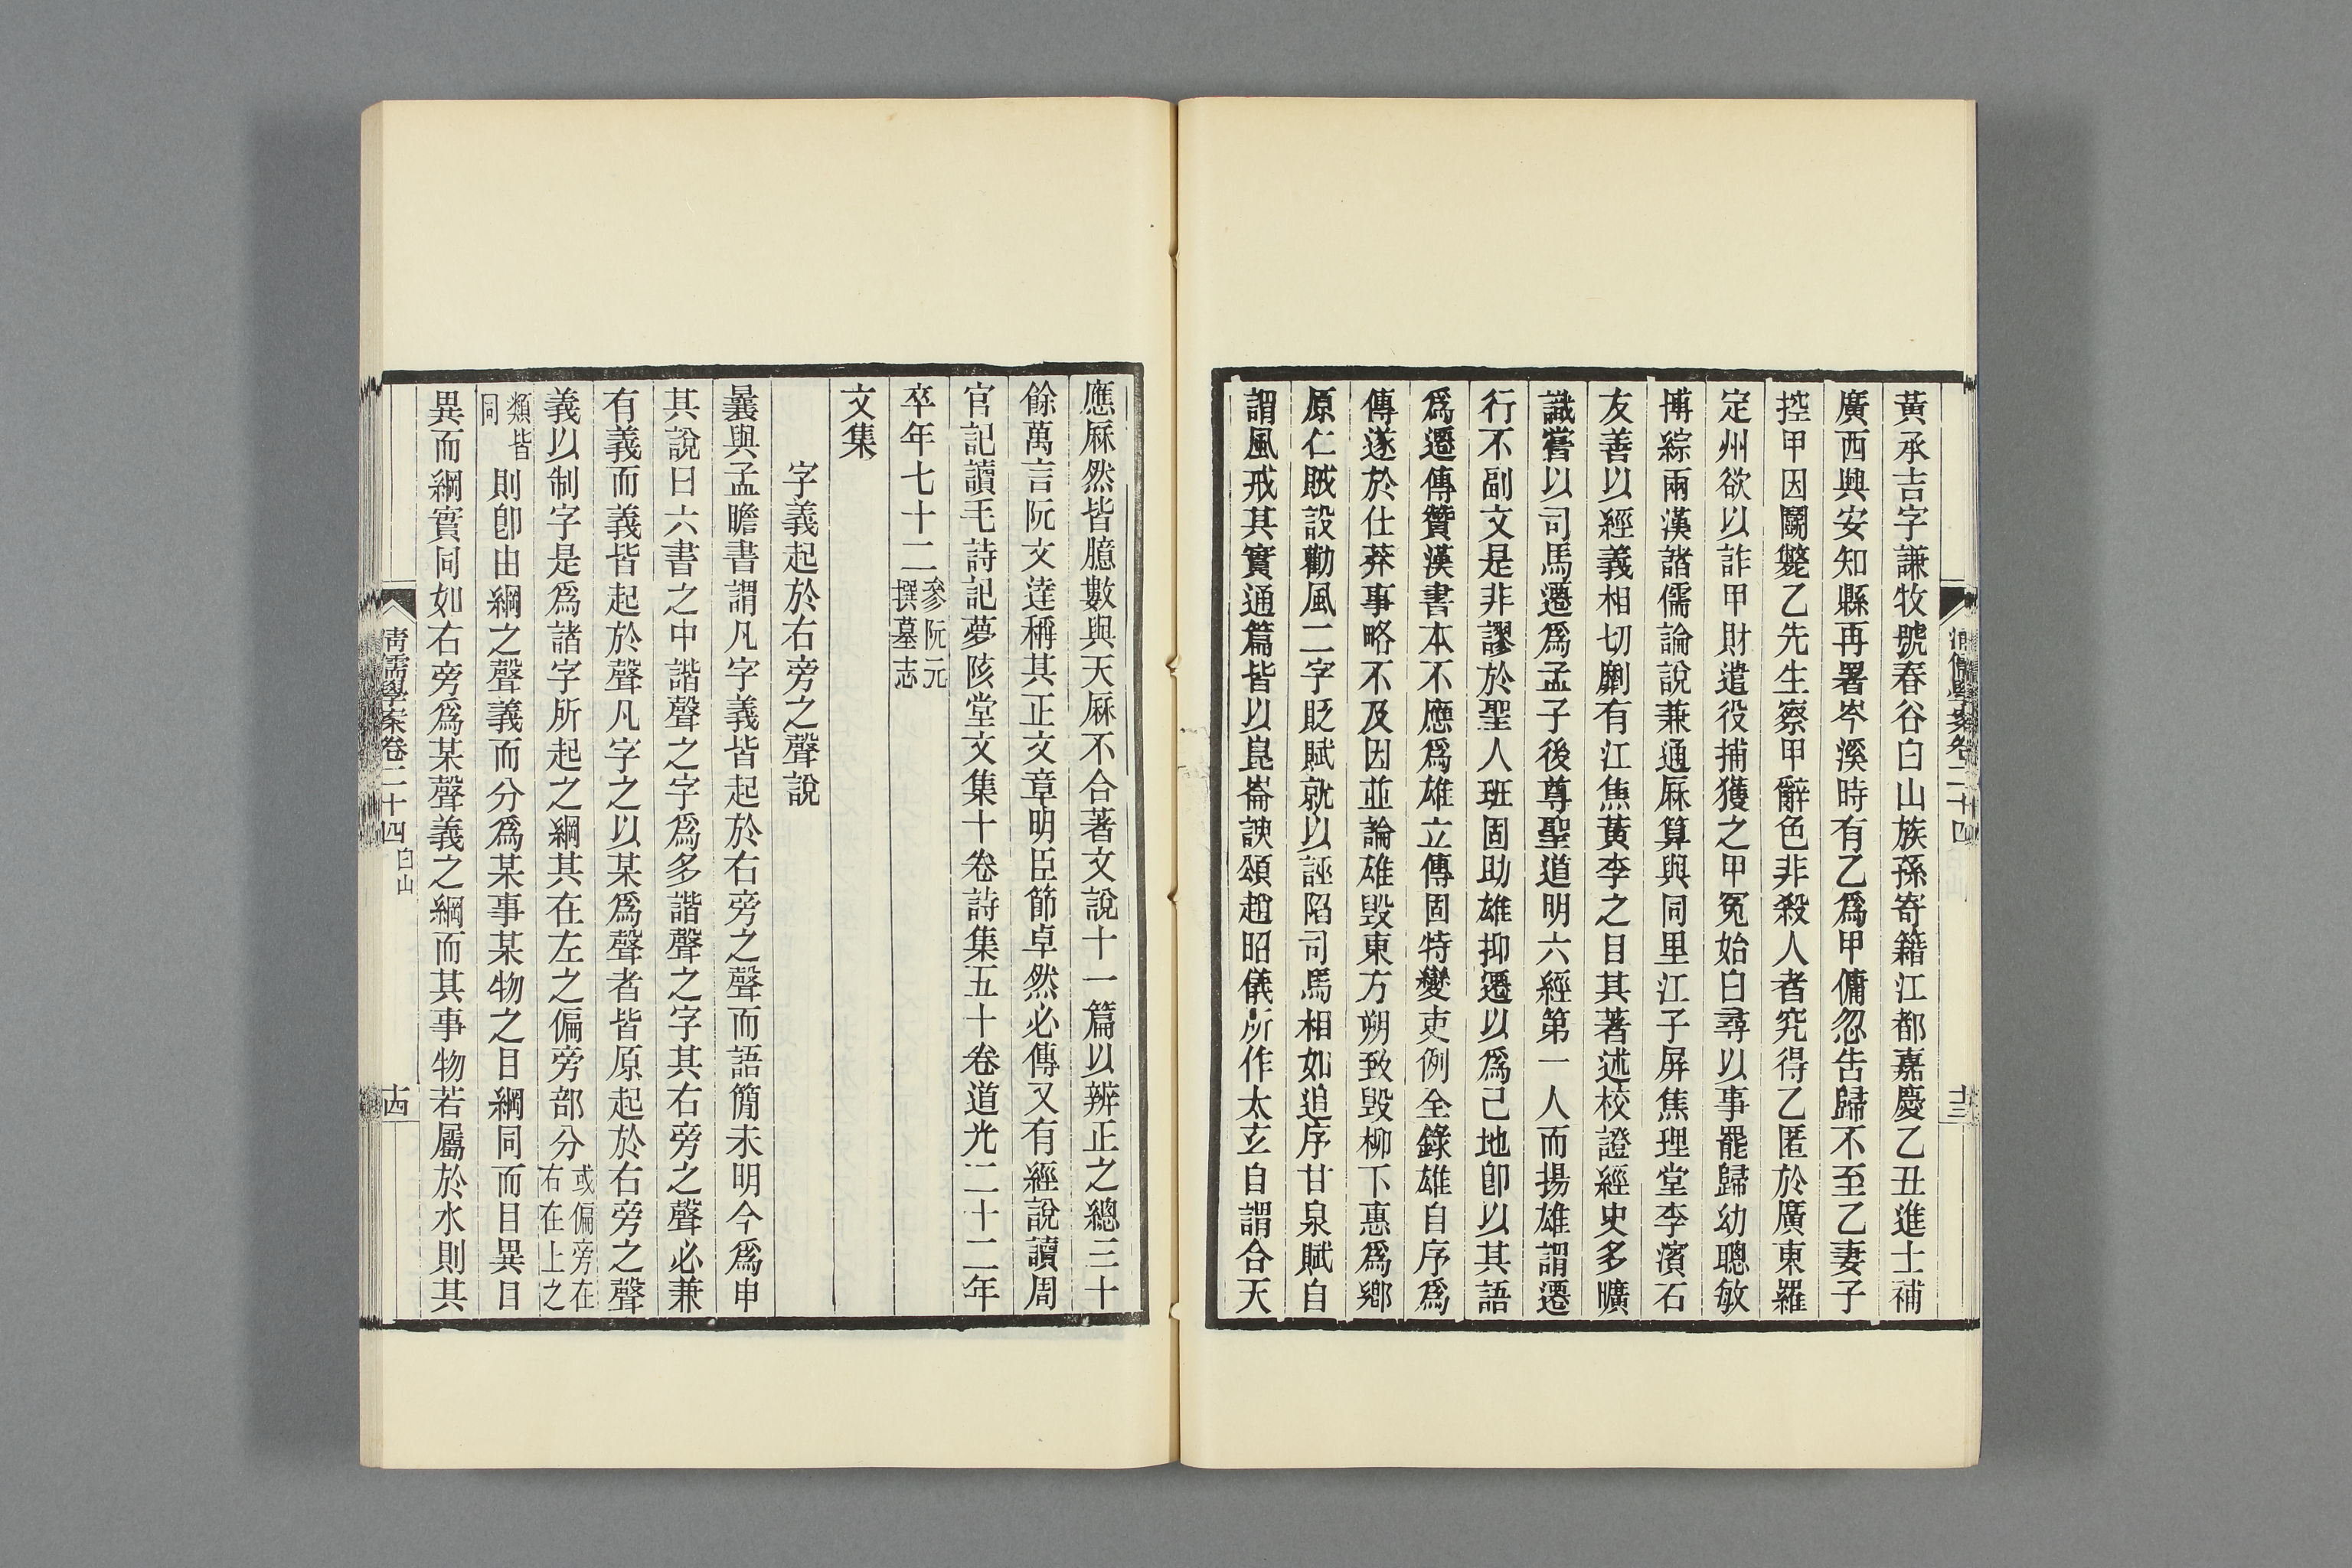 黃承吉字謙牧號春谷白山族孫寄籍江都嘉慶乙丑進士補
廣西興安知縣再署岑溪時有乙爲甲傭忽告歸不至乙妻子
控甲因鬬斃乙先生察甲辭色非殺人者究得乙匿於廣東羅
定州欲以詐甲財遣役捕獲之甲冤始白尋以事罷歸幼聰敏
博綜兩漢諸儒論說兼通厤算與同里江子屏焦理堂李濱石
友善以經義相切劘有江焦黃李之目其著述校證經史多曠
識嘗以司馬遷爲孟子後尊聖道明六經第一人而揚雄謂遷
行不副文是非謬於聖人班固助雄抑遷以爲己地卽以其語
爲遷傳贊漢書本不應爲雄立傳固特變吏例全錄雄自序爲
傳遂於仕莽事略不及因並論雄毀東方朔致毀柳下惠爲鄉
原仁賊設勸風二字貶賦就以誣陷司馬相如追序甘泉賦自
謂風戒其實通篇皆以崑崙諛頌趙昭儀所作太玄自謂合天
十三
應厤然皆臆數與天厤不合著文說十一篇以辨正之總三十
餘萬言阮文達稱其正文章明臣節卓然必傳又有經說讀周
官記讀毛詩記夢陔堂文集十卷詩集五十卷道光二十二年
卒年七十二參阮元
撰墓志
文集
字義起於右旁之聲說
曩與孟瞻書謂凡字義皆起於右旁之聲而語簡未明今爲申
其說曰六書之中諧聲之字爲多諧聲之字其右旁之聲必兼
有義而義皆起於聲凡字之以某爲聲者皆原起於右旁之聲
義以制字是爲諸字所起之綱其在左之偏旁部分或偏旁在
右在上之
類皆
同則卽由綱之聲義而分爲某事某物之目綱同而目異目
異而綱實同如右旁爲某聲義之綱而其事物若屬於水則其
清儒學案卷二十四 白山
十四